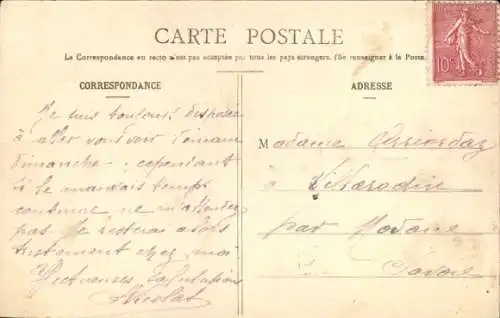 CARTE POSTALE
La Correspondance au recto n'est pas acceptée par tous les pays étrangers. (Se renseigner à la Poste.)
CORRESPONDANCE
Je suis toujours disposée
à aller vous voir demain
dimanche ; cependant
si le mauvais temps
continue ne m'attendez
pas. Je resterai alors
tristement chez moi
Affectueuses salutations
Nicolas
ADRESSE
Madame
à
par Modane
Savoie
10c